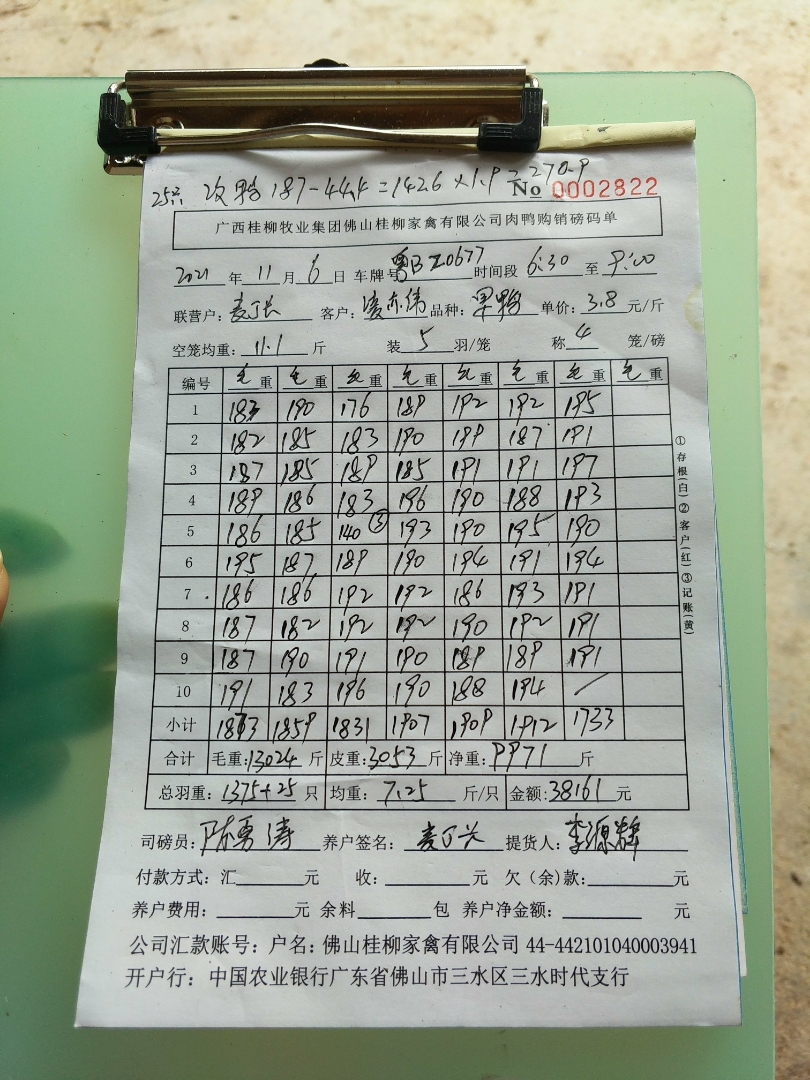 25只 次鸭 187-44.4=142.6×1.9=270.9
No 0002822
广西桂柳牧业集团佛山桂柳家禽有限公司肉鸭购销磅码单
2021年11月6日 车牌号 粤BZ0677 时间段 6:30 至 9:00
联营户: 客户: 品种: 单价:3.8元/斤
空笼均重:11.1斤 装5羽/笼 称4笼/磅
编号 毛重 毛重 毛重 毛重 毛重 毛重 毛重 毛重
1 183 190 176 189 192 192 195
2 182 185 183 190 199 187 191
3 187 185 189 185 191 191 197
4 189 186 183 196 190 188 193
5 186 185 140 ③ 193 190 195 190
6 195 187 189 190 194 191 194
7 186 186 192 192 186 193 191
8 187 182 192 192 190 192 191
9 187 190 191 190 189 189 191
10 191 183 196 190 188 194 /
小计 1873 1859 1831 1907 1909 1912 1733
合计 毛重:13024斤 皮重:3053斤 净重:9971斤
总羽重:1375+25只 均重:7.25斤/只 金额:38161元
司磅员:陈勇涛 养户签名: 提货人:李源辉
付款方式:汇 元 收: 元 欠(余)款: 元
养户费用: 元 余料 包 养户净金额: 元
公司汇款账号:户名:佛山桂柳家禽有限公司 44-442101040003941
开户行:中国农业银行广东省佛山市三水区三水时代支行
①存根(白)②客户(红)③记账(黄)